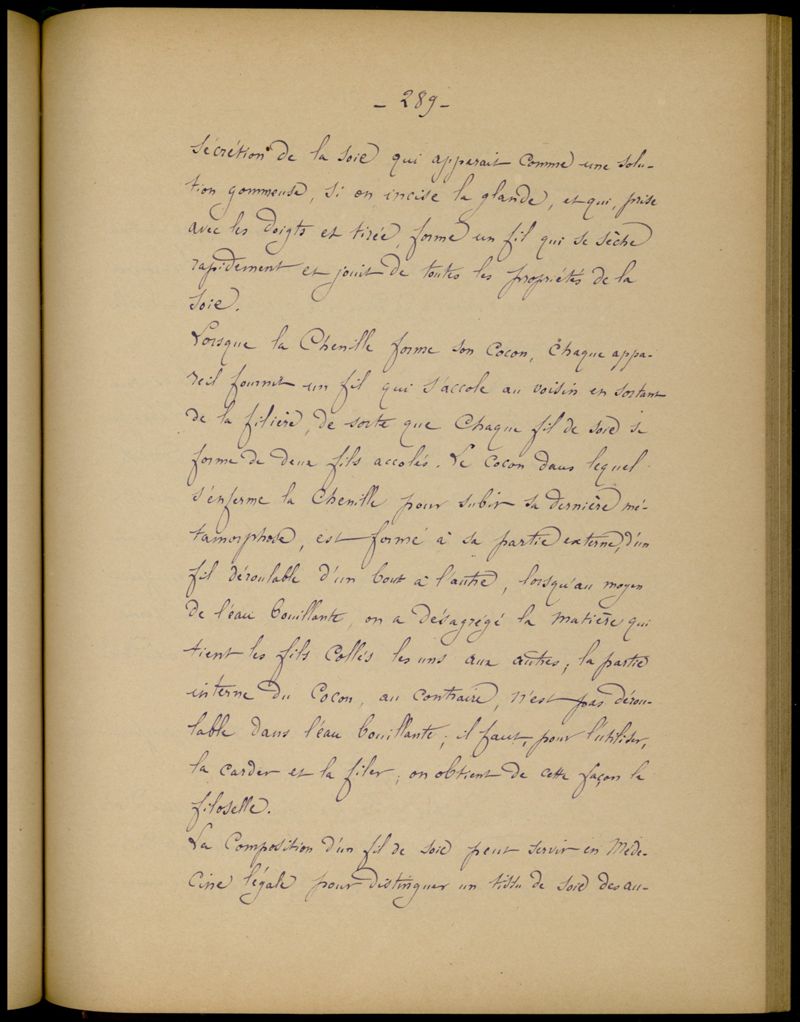 - 289 -
sécrétion de la soie qui apparait comme une solu-
tion gommeuse, si on incise la glande, et qui, prise
avec les doigts et tirée, forme un fil qui se sèche
rapidement et jouit de toutes les propriétés de la
soie.
Lorsque la Chenille forme son Cocon, chaque appa-
reil fournit un fil qui s'accole au voisin en sortant
de la filière, de sorte que chaque fil de soie se
forme de deux fils accolés. Le cocon dans lequel
s'enferme la Chenille pour subir sa dernière mé-
tamorphose, est formé à sa partie externe, d'un
fil déroulable d'un bout à l'autre, lorsqu'au moyen
de l'eau bouillante, on a désagrégé la matière qui
tient les fils collés les uns aux autres; la partie
interne du Cocon, au contraire, n'est pas dérou-
lable dans l'eau bouillante; il faut, pour l'utiliser,
la carder et la filer; on obtient de cette façon la
filoselle.
La Composition d'un fil de soie peut servir en Méde-
cine légale pour distinguer un tissu de soie des au-